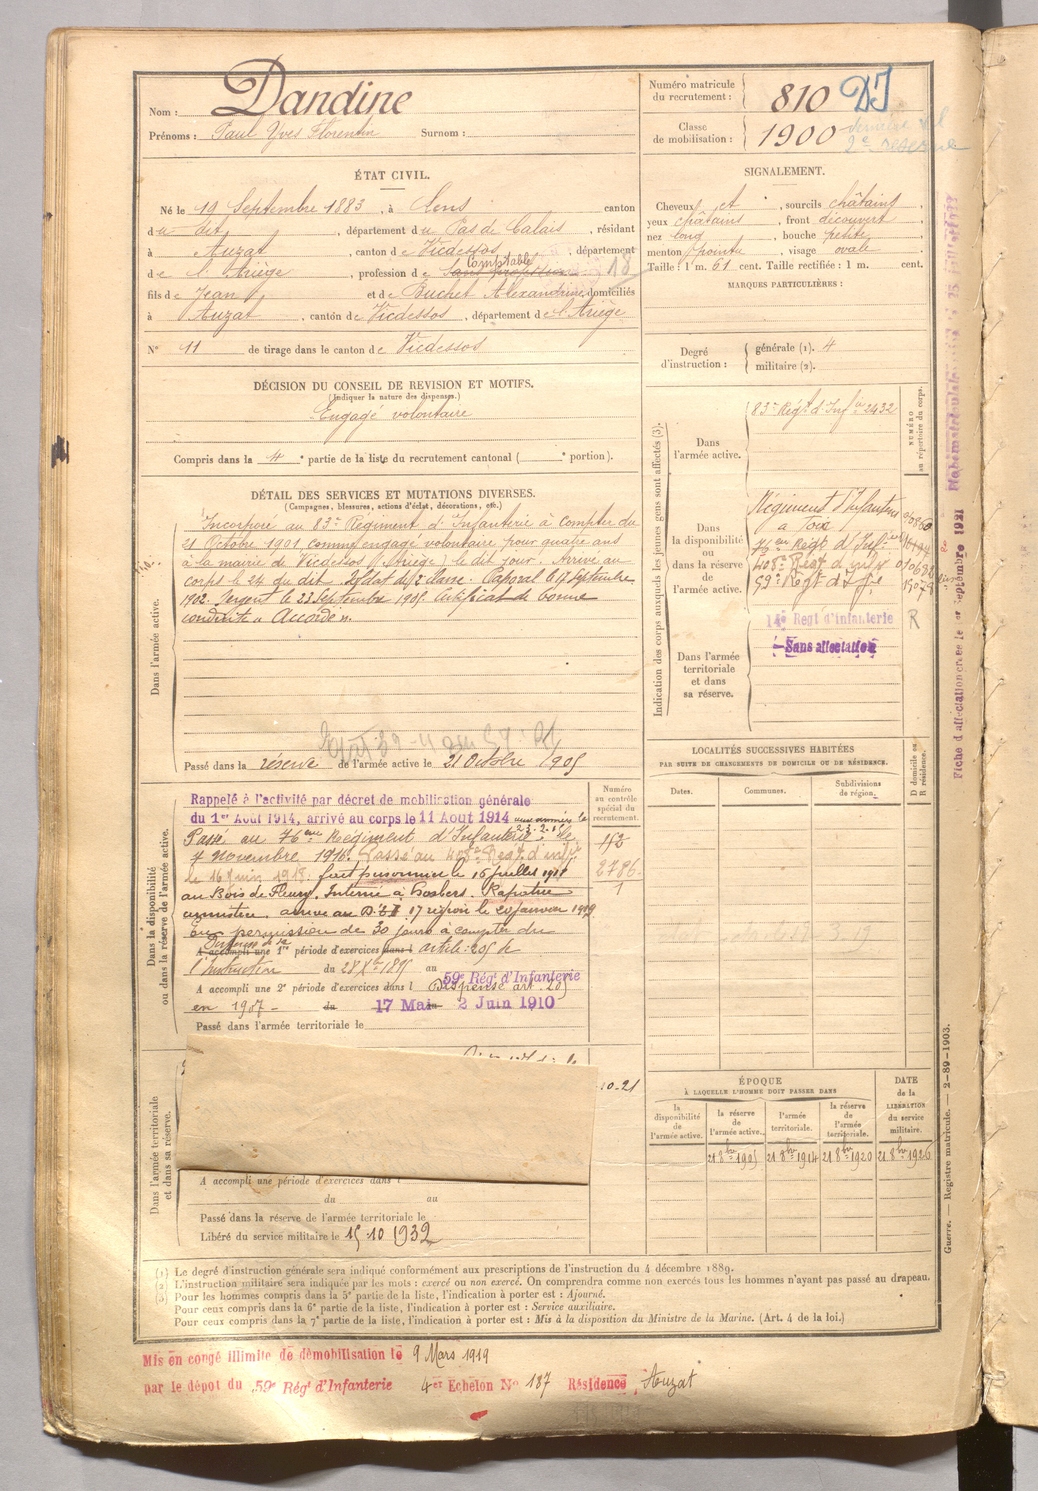 Nom : Dandine
Prénoms : Paul Yves Florentin Surnom :
Numéro matricule du recrutement : 810 DI
Classe de mobilisation : 1900
2e reserve
ÉTAT CIVIL.
Né le 19 Septembre 1883, à Lens canton
du dit, département du Pas de Calais, résidant
à Auzat, canton de Vicdessos, département
de l'Ariège, profession de Comptable 18
fils de Jean et de Buchet Alexandrine, domiciliés
à Auzat, canton de Vicdessos, département de l'Ariège
N° 11 de tirage dans le canton de Vicdessos
SIGNALEMENT.
Cheveux et, sourcils châtains,
yeux châtains, front découvert,
nez long, bouche petite,
menton pointu, visage ovale
Taille : 1 m. 61 cent. Taille rectifiée : 1 m. cent.
MARQUES PARTICULIÈRES :
Degré d'instruction : générale (1). 4
militaire (2).
DÉCISION DU CONSEIL DE REVISION ET MOTIFS.
(Indiquer la nature des dispenses.)
Engagé volontaire
Compris dans la 4e partie de la liste du recrutement cantonal ( e portion).
DÉTAIL DES SERVICES ET MUTATIONS DIVERSES.
(Campagnes, blessures, actions d'éclat, décorations, etc.)
Dans l'armée active.
Incorporé au 83e Régiment d'Infanterie à compter du
21 Octobre 1901 comme engagé volontaire pour quatre ans
à la mairie de Vicdessos (Ariège) le dit jour. Arrivé au
corps le 24 du dit. Soldat de 2e classe. Caporal le 17 Septembre
1902. Sergent le 23 Septembre 1905. Certificat de bonne
conduite « Accordé ».
Passé dans la réserve de l'armée active le 21 Octobre 1905
Indication des corps auxquels les jeunes gens sont affectés (3).
NUMÉRO au répertoire du corps.
Dans l'armée active.
83e Régt d'Infie 2432
Dans la disponibilité ou dans la réserve de l'armée active.
Régiment d'Infanterie
à Foix
76eme Régt d'Infie
408e Régt d'Infie
59e Régt d'Infie
Dans l'armée territoriale et dans sa réserve.
14e Regt d'infanterie R
Sans affectation
Dans la disponibilité ou dans la réserve de l'armée active.
Numéro au contrôle spécial du recrutement.
Rappelé à l'activité par décret de mobilisation générale
du 1er Août 1914, arrivé au corps le 11 Août 1914
Passé au 76eme Régiment d'Infanterie le
7 Novembre 1916. Passé au 408e Régt d'infie
le 16 Juin 1918. fait prisonnier le 15 juillet 1918
au Bois de Fleury. Interné à Rapatrié
armistice, arrivé au 17 région le 20 janvier 1919
en permission de 30 jours à compter du
A accompli une 1re période d'exercices dans l
l'Instruction du au
A accompli une 2e période d'exercices dans l 59e Régt d'Infanterie
Dispensé art. 205
en 1907 du 17 Mai au 2 Juin 1910
Passé dans l'armée territoriale le
2786
10-21
Dans l'armée territoriale et dans sa réserve.
A accompli une période d'exercices dans l
du au
Passé dans la réserve de l'armée territoriale le
Libéré du service militaire le 15 10 1932
LOCALITÉS SUCCESSIVES HABITÉES
PAR SUITE DE CHANGEMENTS DE DOMICILE OU DE RÉSIDENCE.
Dates. Communes. Subdivisions de région. D domicile ou R résidence.
ÉPOQUE
À LAQUELLE L'HOMME DOIT PASSER DANS
la disponibilité de l'armée active. la réserve de l'armée active. l'armée territoriale. la réserve de l'armée territoriale. DATE de la LIBÉRATION du service militaire.
21 8bre 1905 21 8bre 1914 21 8bre 1920 21 8bre 1926
(1) Le degré d'instruction générale sera indiqué conformément aux prescriptions de l'instruction du 4 décembre 1889.
(2) L'instruction militaire sera indiquée par les mots : exercé ou non exercé. On comprendra comme non exercés tous les hommes n'ayant pas passé au drapeau.
(3) Pour les hommes compris dans la 5e partie de la liste, l'indication à porter est : Ajourné.
Pour ceux compris dans la 6e partie de la liste, l'indication à porter est : Service auxiliaire.
Pour ceux compris dans la 7e partie de la liste, l'indication à porter est : Mis à la disposition du Ministre de la Marine. (Art. 4 de la loi.)
Guerre. — Registre matricule. — 2-89-1903.
Mis en congé illimité de démobilisation le 9 Mars 1919
par le dépôt du 59e Régt d'Infanterie 4er Echelon N° 187 Résidence Auzat